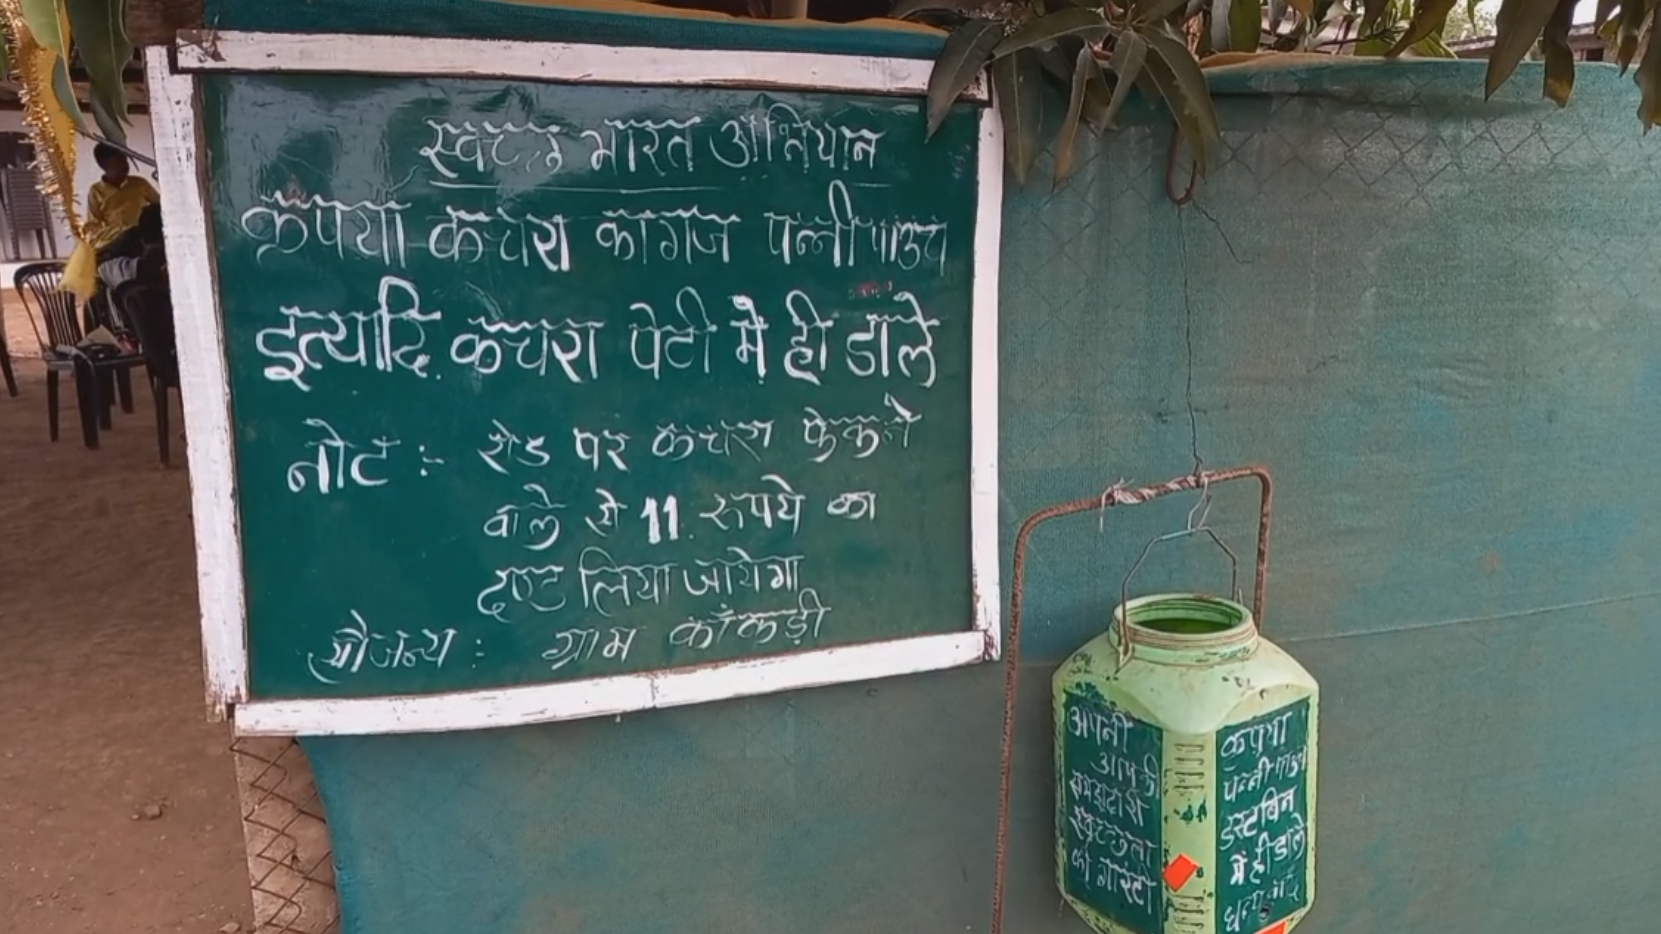 स्वच्छ भारत अभियान
कृपया कचरा कागज पन्नी पाउच
इत्यादि कचरा पेटी मे ही डाले
नोट :- रोड पर कचरा फेकने
वाले से 11. रूपये का
दण्ड लिया जायेगा
सौजन्य : ग्राम काँकड़ी
अपनी
आपकी
समझदारी
स्वच्छता
की गारंटी
कृपया
पन्नी पाउच
डस्टबिन
में ही डाले
धन्यवाद